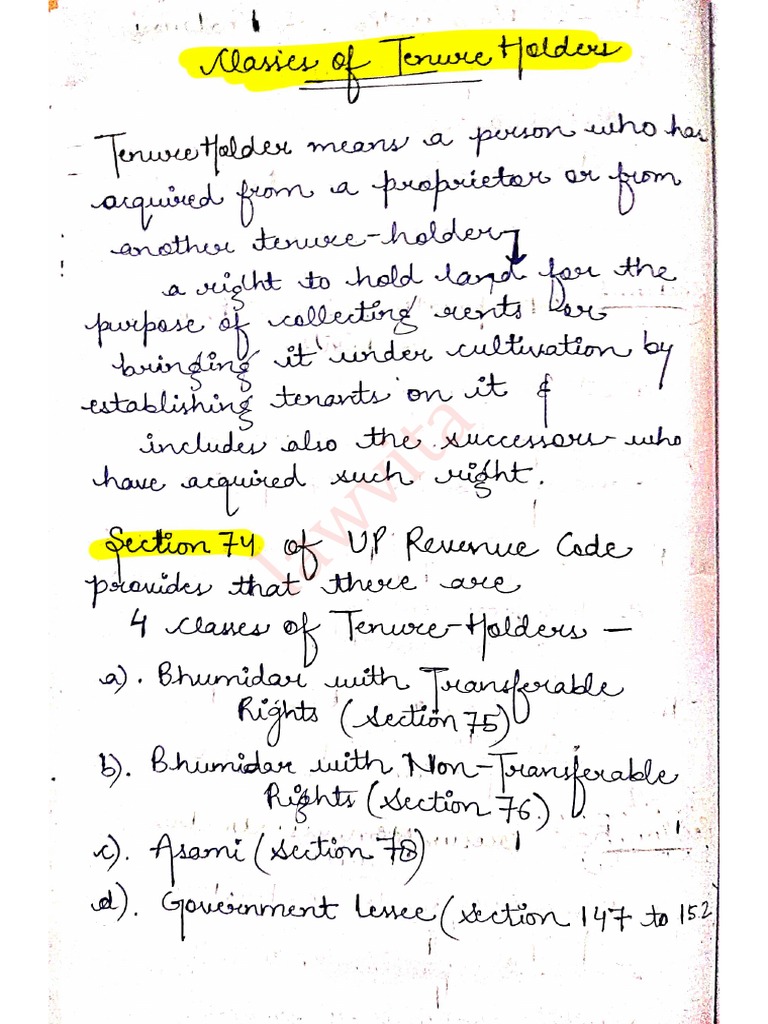 Classes of Tenure Holders
Tenure Holder means a person who has
acquired from a proprietor or from
another tenure-holder
a right to hold land for the
purpose of collecting rents or
bringing it under cultivation by
establishing tenants on it &
includes also the successors who
have acquired such right.
Section 74 of UP Revenue Code
provides that there are
4 classes of Tenure-Holders —
a). Bhumidar with Transferable
Rights (Section 75)
b). Bhumidar with Non-Transferable
Rights (Section 76)
c). Asami (Section 78)
d). Government Lessee (Section 147 to 152
lawvita